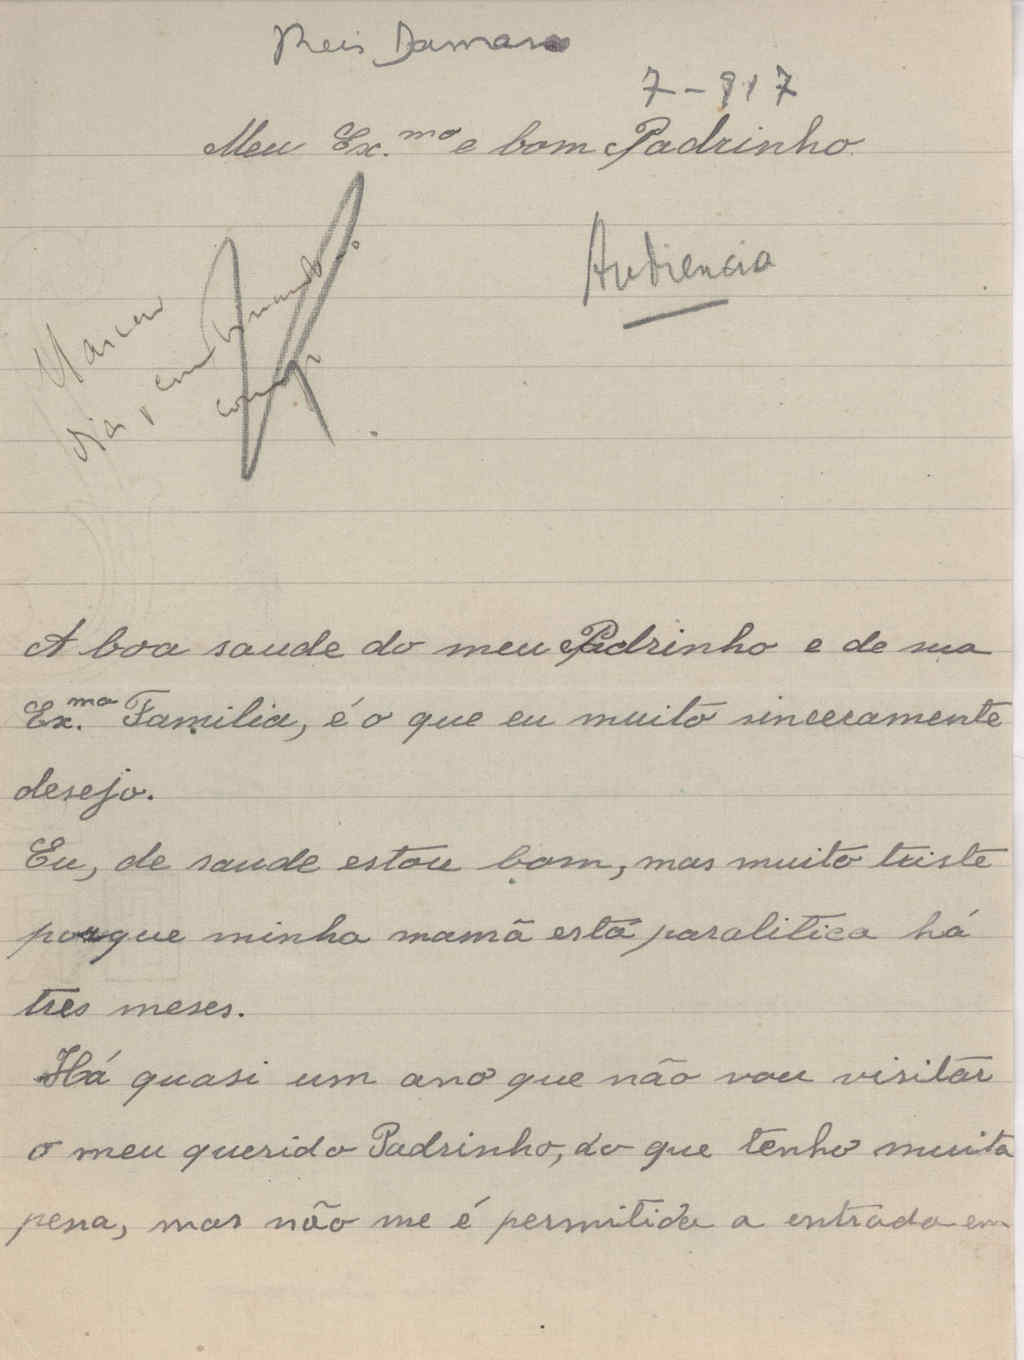 Reis Damaso
7-917
Meu Ex.mo e bom Padrinho
Audiencia
Marcar
dia, em
A boa saude do meu Padrinho e de sua
Ex.ma Familia, é o que eu muito sinceramente
desejo.
Eu, de saude estou bom, mas muito triste
porque minha mamã está paralitica há
tres meses.
Há quasi um ano que não vou visitar
o meu querido Padrinho, do que tenho muita
pena, mas não me é permitida a entrada em